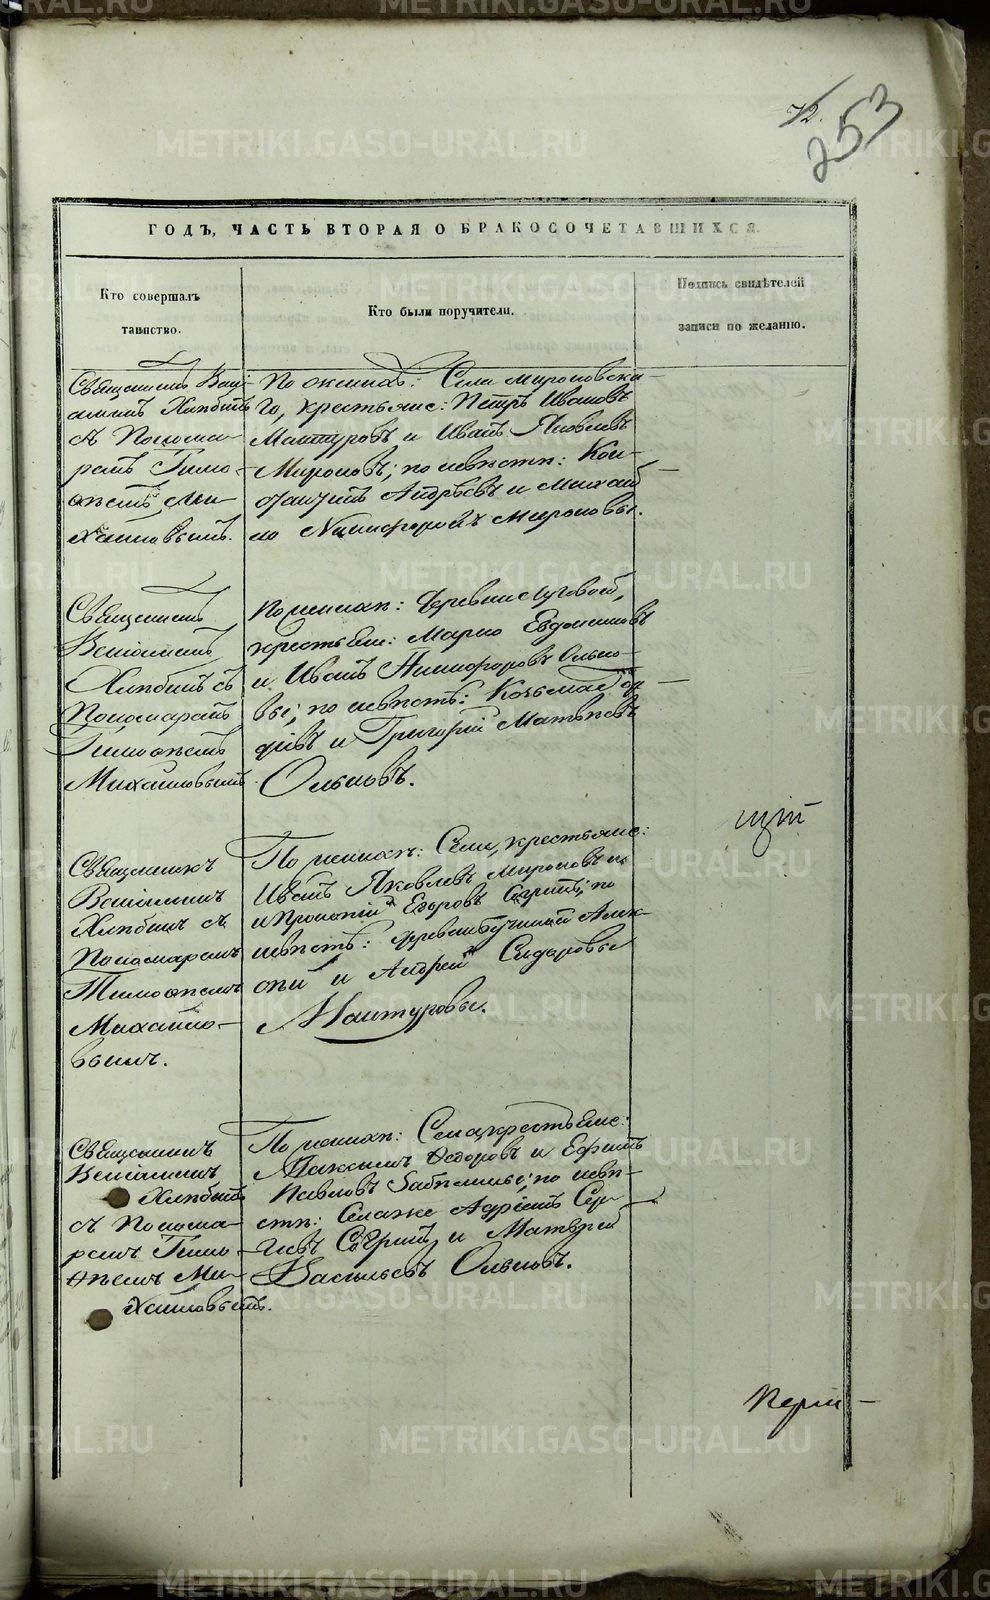 72.
253
ГОДЪ, ЧАСТЬ ВТОРАЯ О БРАКОСОЧЕТАВШИХСЯ.
Кто совершалъ
таинство.
Кто были поручители.
Подпись свидѣтелей
записи по желанію.
Священникъ
съ Понома-
ремъ Тимо-
ѳеемъ Ми-
хайловымъ.
По женихѣ: Села Мироновска-
го, крестьяне: Петръ Ивановъ
Мантуровъ и Иванъ Яковлевъ
Мироновъ; по невѣстѣ: Кон-
Андреевъ и Михаи-
ло Никифоровъ Мироновы.
Священникъ
Веніаминъ
Хлѣбинъ съ
Пономаремъ
Тимоѳеемъ
Михайловымъ.
По женихѣ: Деревни Луговой,
крестьяне: Марко Евдокимовъ
и Иванъ Никифоровъ Олько-
вы; по невѣстѣ: Козьма
и Григорій Матвѣевъ
Ольковъ.
Священникъ
Веніаминъ
Хлѣбинъ съ
Пономаремъ
Тимоѳеемъ
Михайло-
вымъ.
По женихѣ: Села, крестьяне:
Иванъ Яковлевъ Мироновъ
и Егоровъ по
невѣстѣ: Деревни Алек-
сѣй и Андрей Сидоровы
Мантуровы.
Священникъ
Веніаминъ
Хлѣбинъ
съ Понома-
ремъ Тимо-
ѳеемъ Ми-
хайловымъ.
По женихѣ: Села, крестьяне:
Максимъ Ѳедоровъ и Ефимъ
Павловъ по невѣ-
стѣ: Села же Сер-
гѣевъ и Матвѣй
Васильевъ Ольковъ.